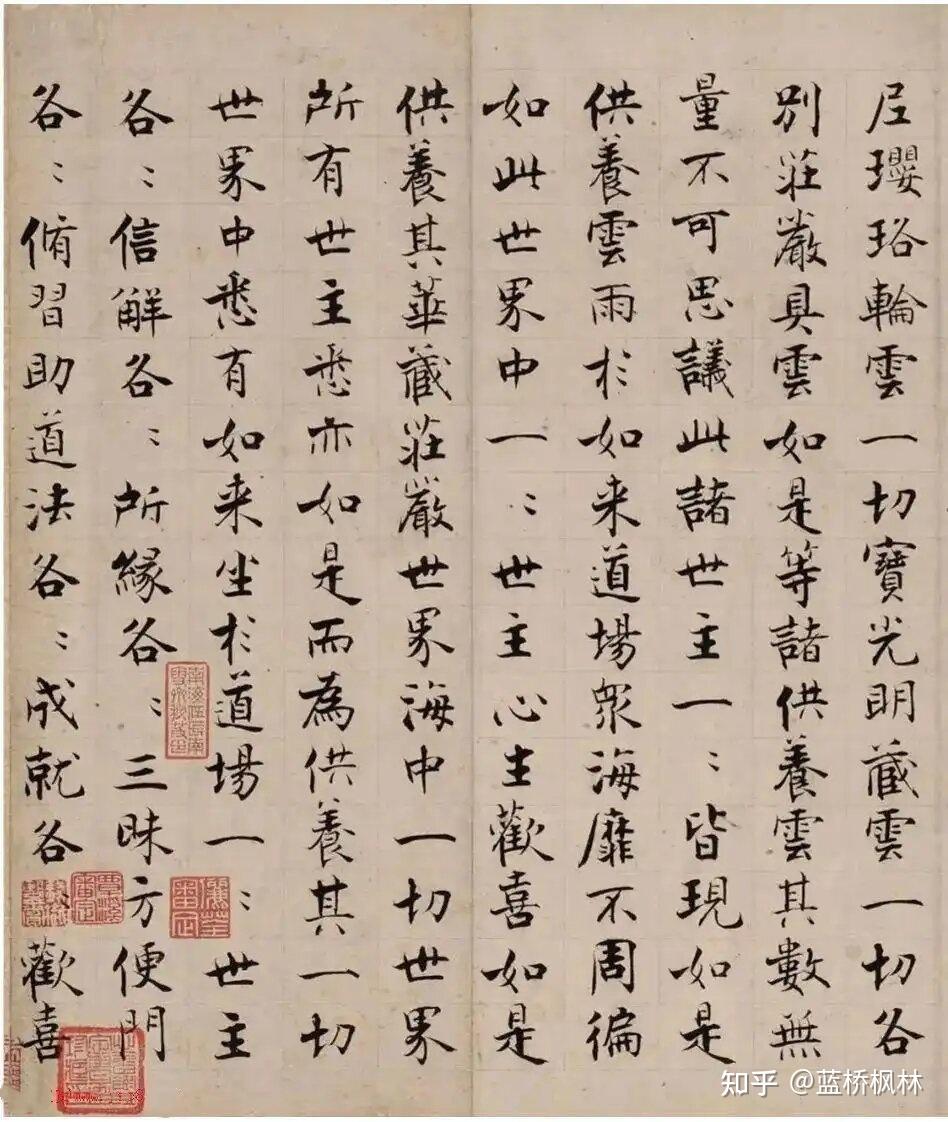 尼瓔珞輪雲一切寶光明藏雲一切各
別莊嚴具雲如是等諸供養雲其數無
量不可思議此諸世主一〻皆現如是
供養雲雨於如来道場衆海靡不周徧
如此世界中一〻世主心生歡喜如是
供養其華藏莊嚴世界海中一切世界
所有世主悉亦如是而為供養其一切
世界中悉有如来坐於道場一〻世主
各〻信解各〻所緣各〻三昧方便門
各〻脩習助道法各〻成就各〻歡喜
知乎 @蓝桥枫林